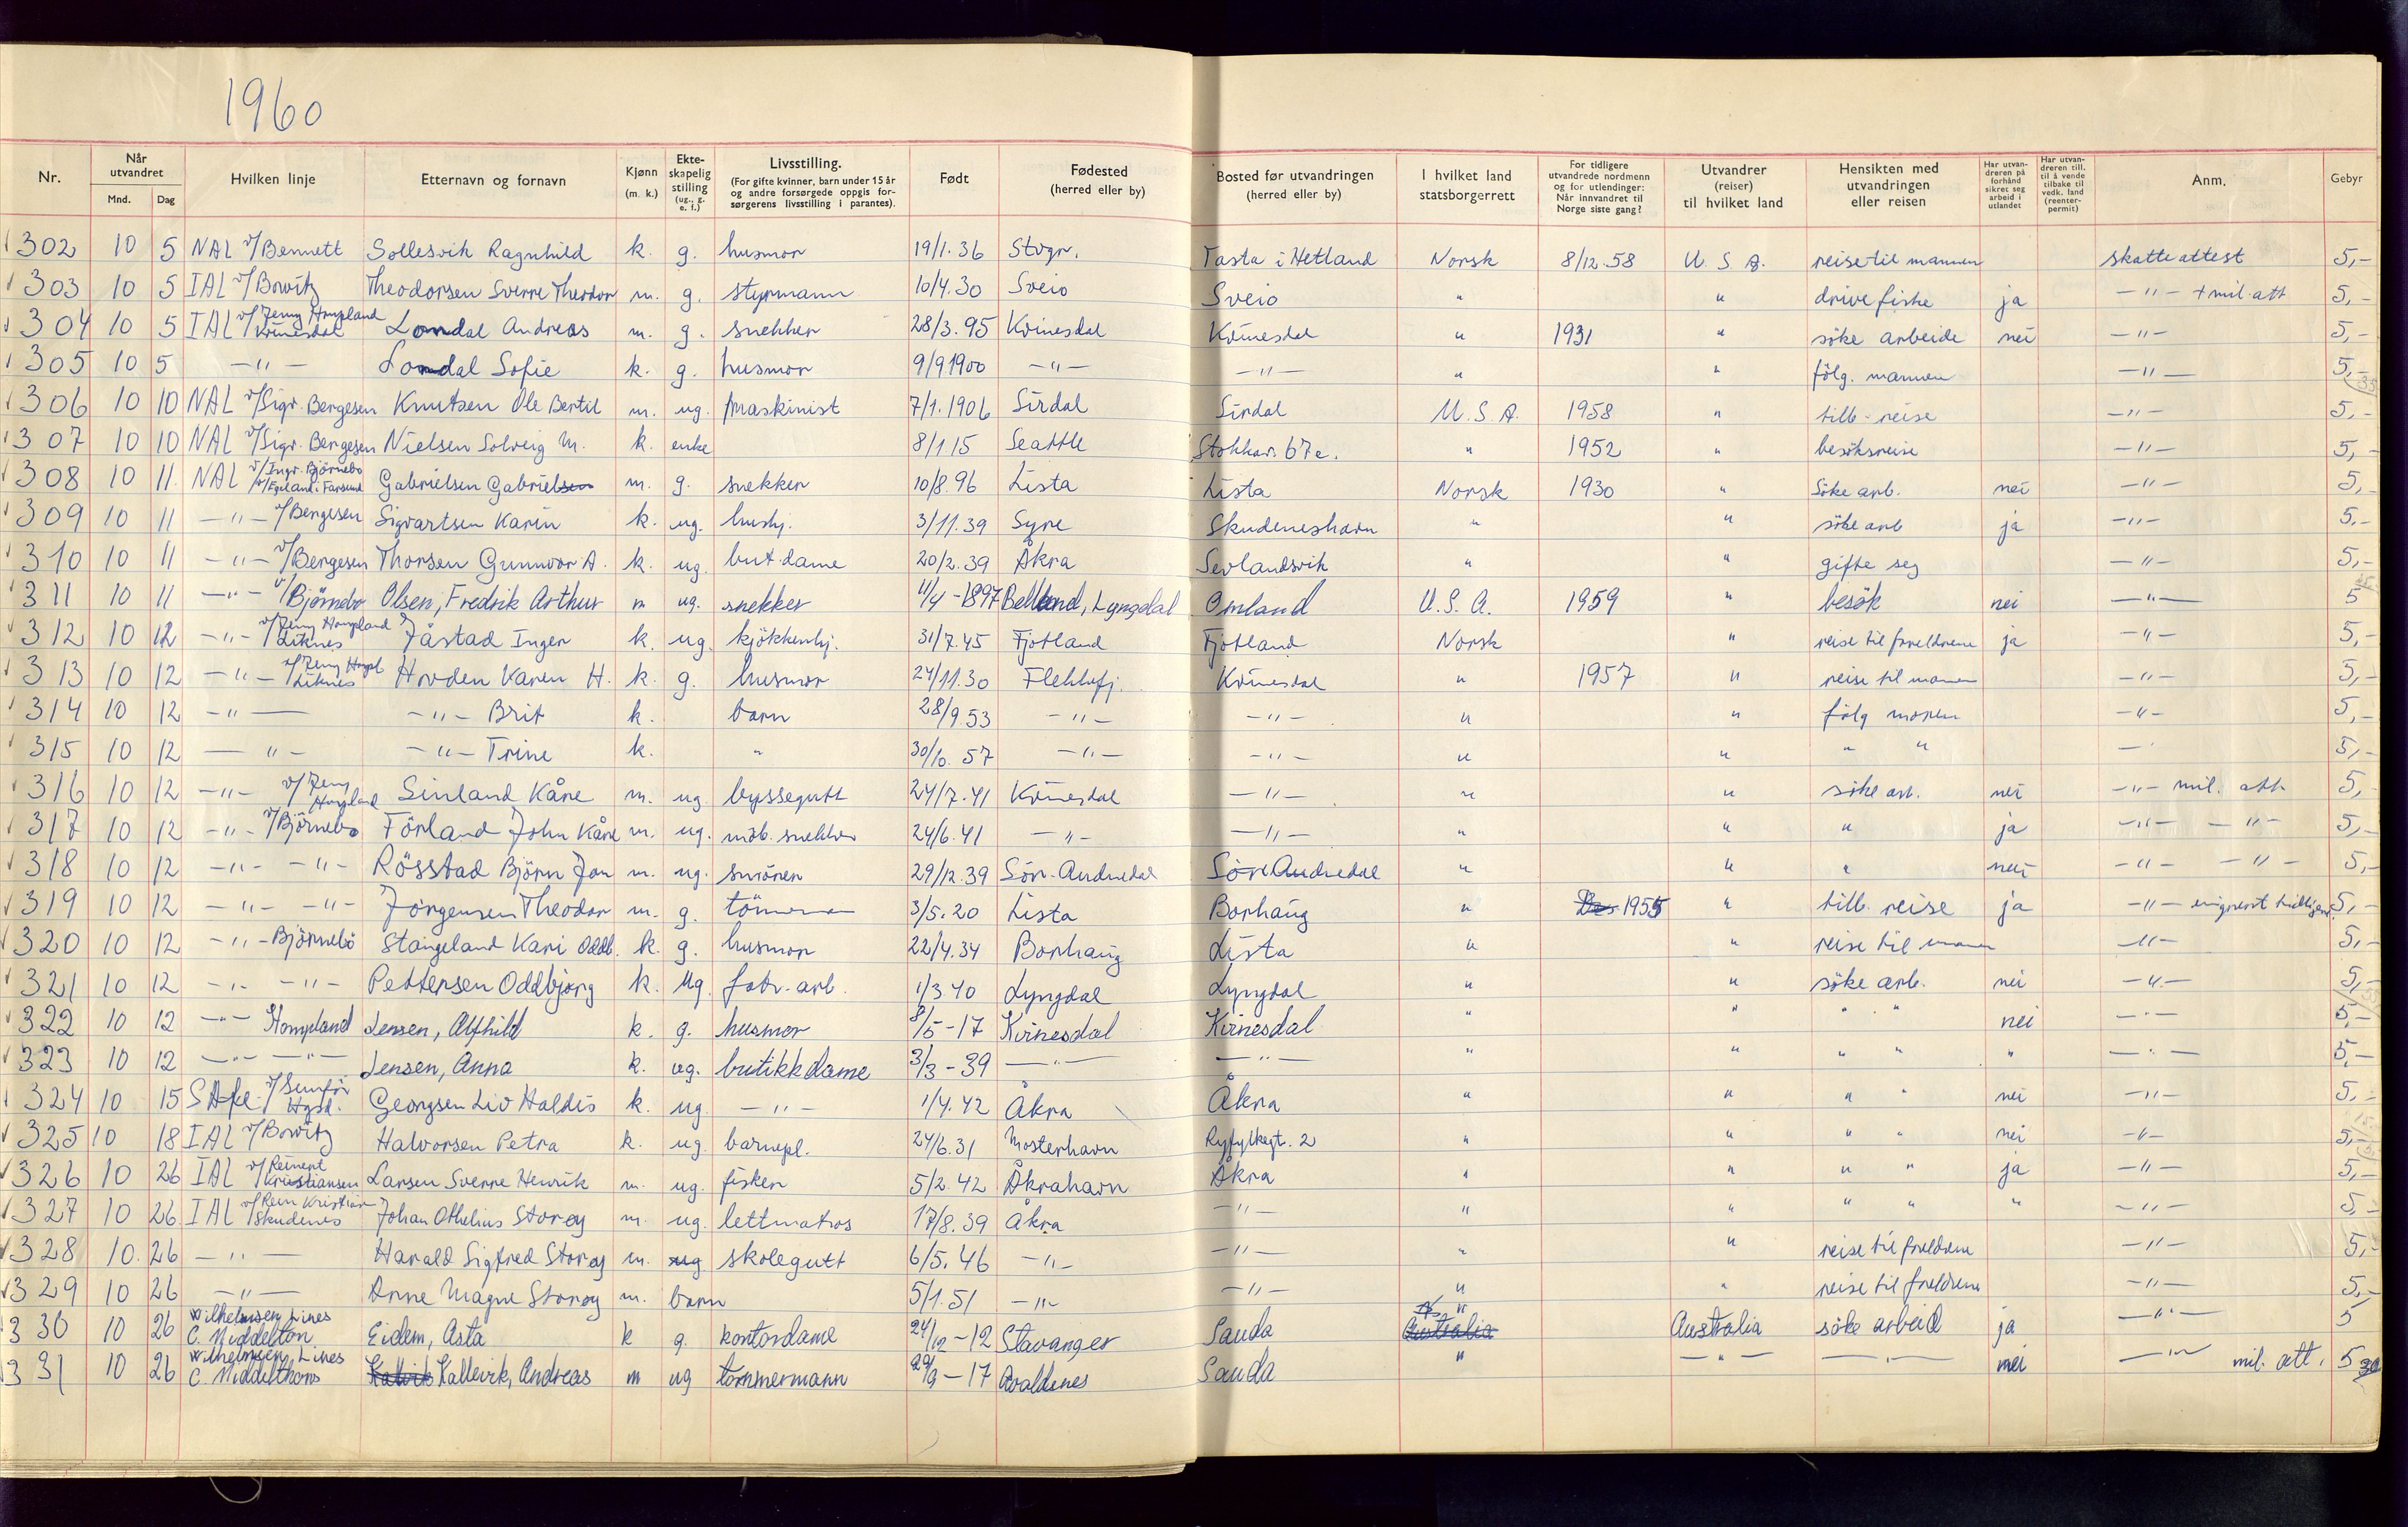 1960
Nr. Når utvandret Mnd. Dag Hvilken linje Etternavn og fornavn Kjønn (m. k.) Ekteskapelig stilling (ug., g. e. f.) Livsstilling. (For gifte kvinner, barn under 15 år og andre forsørgede oppgis forsørgerens livsstilling i parantes). Født Fødested (herred eller by) Bosted før utvandringen (herred eller by) I hvilket land statsborgerrett For tidligere utvandrede nordmenn og for utlendinger: Når innvandret til Norge siste gang? Utvandrer (reiser) til hvilket land Hensikten med utvandringen eller reisen Har utvandreren på forhånd sikret seg arbeid i utlandet Har utvandreren till. til å vende tilbake til vedk. land (reenterpermit) Anm. Gebyr
302 10 5 NAL v/Bennett Sollesvik Ragnhild k. g. husmor 19/1.36 Stvgr. Tasta i Hetland Norsk 8/12.58 U.S.A. reise til mannen skatteattest 5,-
303 10 5 IAL v/Bowitz Theodorsen Sverre Theodor m. g. styrmann 10/4.30 Sveio Sveio " " drive fiske ja -"- + mil. att 5,-
304 10 5 IAL v/Jenny Hompland Kvinesdal Londal Andreas m. g. snekker 28/3.95 Kvinesdal Kvinesdal " 1931 " söke arbeide nei -"- 5,-
305 10 5 -"- Londal Sofie k. g. husmor 9/9.1900 -"- -"- " " fölg. mannen -"- 5,-
306 10 10 NAL v/Sigv. Bergesen Knutsen Ole Bertil m. ug. maskinist 7/1.1906 Sirdal Sirdal U.S.A. 1958 " tilb-reise -"- 5,-
307 10 10 NAL v/Sigv. Bergesen Nielsen Solveig M. k. enke 8/1 15 Seattle Stokkav. 67e. " 1952 " besöksreise -"- 5,-
308 10 11. NAL v/Ingv. Björnebo v/Egeland i Farsund Gabrielsen Gabrielsen m. g. snekker 10/8.96 Lista Lista Norsk 1930 " Söke arb. nei -"- 5,-
309 10 11 -"- v/Bergesen Sigvartsen Karin k. ug. hushj. 3/11.39 Syre Skudeneshavn " " söke arb ja -"- 5.-
310 10 11 -"- v/Bergesen Thorsen Gunnvor A. k. ug. but.dame 20/2.39 Åkra Sevlandsvik " " gifte seg -"- 5,-
311 10 11 -"- v/Björnebo Olsen, Fredrik Arthur m ug. snekker 11/4-1897 Belland, Lyngdal Omland U.S.A. 1959 " besök nei -"- 5
312 10 12 -"- v/Jenny Hompland Liknes Jåstad Inger k. ug. kjökkenhj. 31/7.45 Fjotland Fjotland Norsk " reise til foreldrene ja -"- 5,-
313 10 12 -"- v/Jenny Hompl Liknes Hovden Karen H. k. g. husmor 24/11.30 Flekkefj. Kvinesdal " 1957 " reise til mannen -"- 5,-
314 10 12 -"- -"- Brit k. barn 28/9.53 -"- -"- " " fölg moren -"- 5,-
315 10 12 -"- -"- Trine k. " 30/10.57 -"- -"- " " " " - 5,-
316 10 12 -"- v/Jenny Hompland Sinland Kåre m. ug. byssegutt 24/7.41 Kvinesdal -"- " " söke arb. nei -"- mil. att. 5,-
317 10 12 -"- v/Björnebo Förland John Kåre m. ug. möb. snekker 24/6.41 -"- -"- " " " ja -"- -"- 5,-
318 10 12 -"- -"- Rösstad Björn Jan m. ug. smörer 29/12.39 Sör-Audnedal Sör-Audnedal " " " nei -"- -"- 5,-
319 10 12 -"- -"- Jörgensen Theodor m. g. tömmerm 3/5.20 Lista Borhaug " Des. 1955 " tilb. reise ja -"- emigrert tidligere 5,-
320 10 12 -"- Björnebö Stangeland Kari Oddb. k. g. husmor 22/4.34 Borhaug Lista " " reise til mannen -"- 5,-
321 10 12 -"- -"- Pettersen Oddbjörg k. ug. fabr.-arb. 1/3 40 Lyngdal Lyngdal " " söke arb. nei -"- 5,-
322 10 12 -"- Hompland Jensen, Alfhild k. g. husmor 8/5-17 Kvinesdal Kvinesdal " " " " nei -"- 5,-
323 10 12 -"- -"- Jensen, Anna k. ug. butikkdame 3/3-39 -"- -"- " " " " " -"- 5,-
324 10 15 v/Sunför Hgsd. Georgsen Liv Haldis k. ug -"- 1/4.42 Åkra Åkra " " " " nei -"- 5,-
325 10 18 IAL v/Bowitz Halvorsen Petra k. ug. barnepl. 24/6.31 Mosterhavn Ryfylkegt. 2 " " " " nei -"- 5,-
326 10 26 IAL v/Reinert Kristiansen Larsen Sverre Henrik m. ug. fisker 5/2.42 Åkrahavn Åkra " " " " ja -"- 5,-
327 10 26. IAL v/Rein Kristian Skudenes Johan Othelius Storøy m. ug. lettmatros 17/8.39 Åkra -"- " " " " " -"- 5,-
328 10. 26 -"- Harald Sigfred Storøy m. ug skolegutt 6/5.46 -"- -"- " " reise til foreldrene -"- 5,-
329 10 26 -"- Arne Magne Storøy m. barn 5/1.51 -"- -"- " " reise til foreldrene -"- 5,-
330 10 26 Wilhelmsen Lines C. Middelton Eidem, Asta k g. kontordame 24/12-12 Stavanger Sauda Australia " Australia söke arbeid ja -"- 5
331 10 26 Wilhelmsen Lines C. Middelthons Kallvik Kallevik, Andreas m ug tömmermann 29/9-17 Avaldsnes Sauda " -"- -"- nei -"- mil. att. 5 30